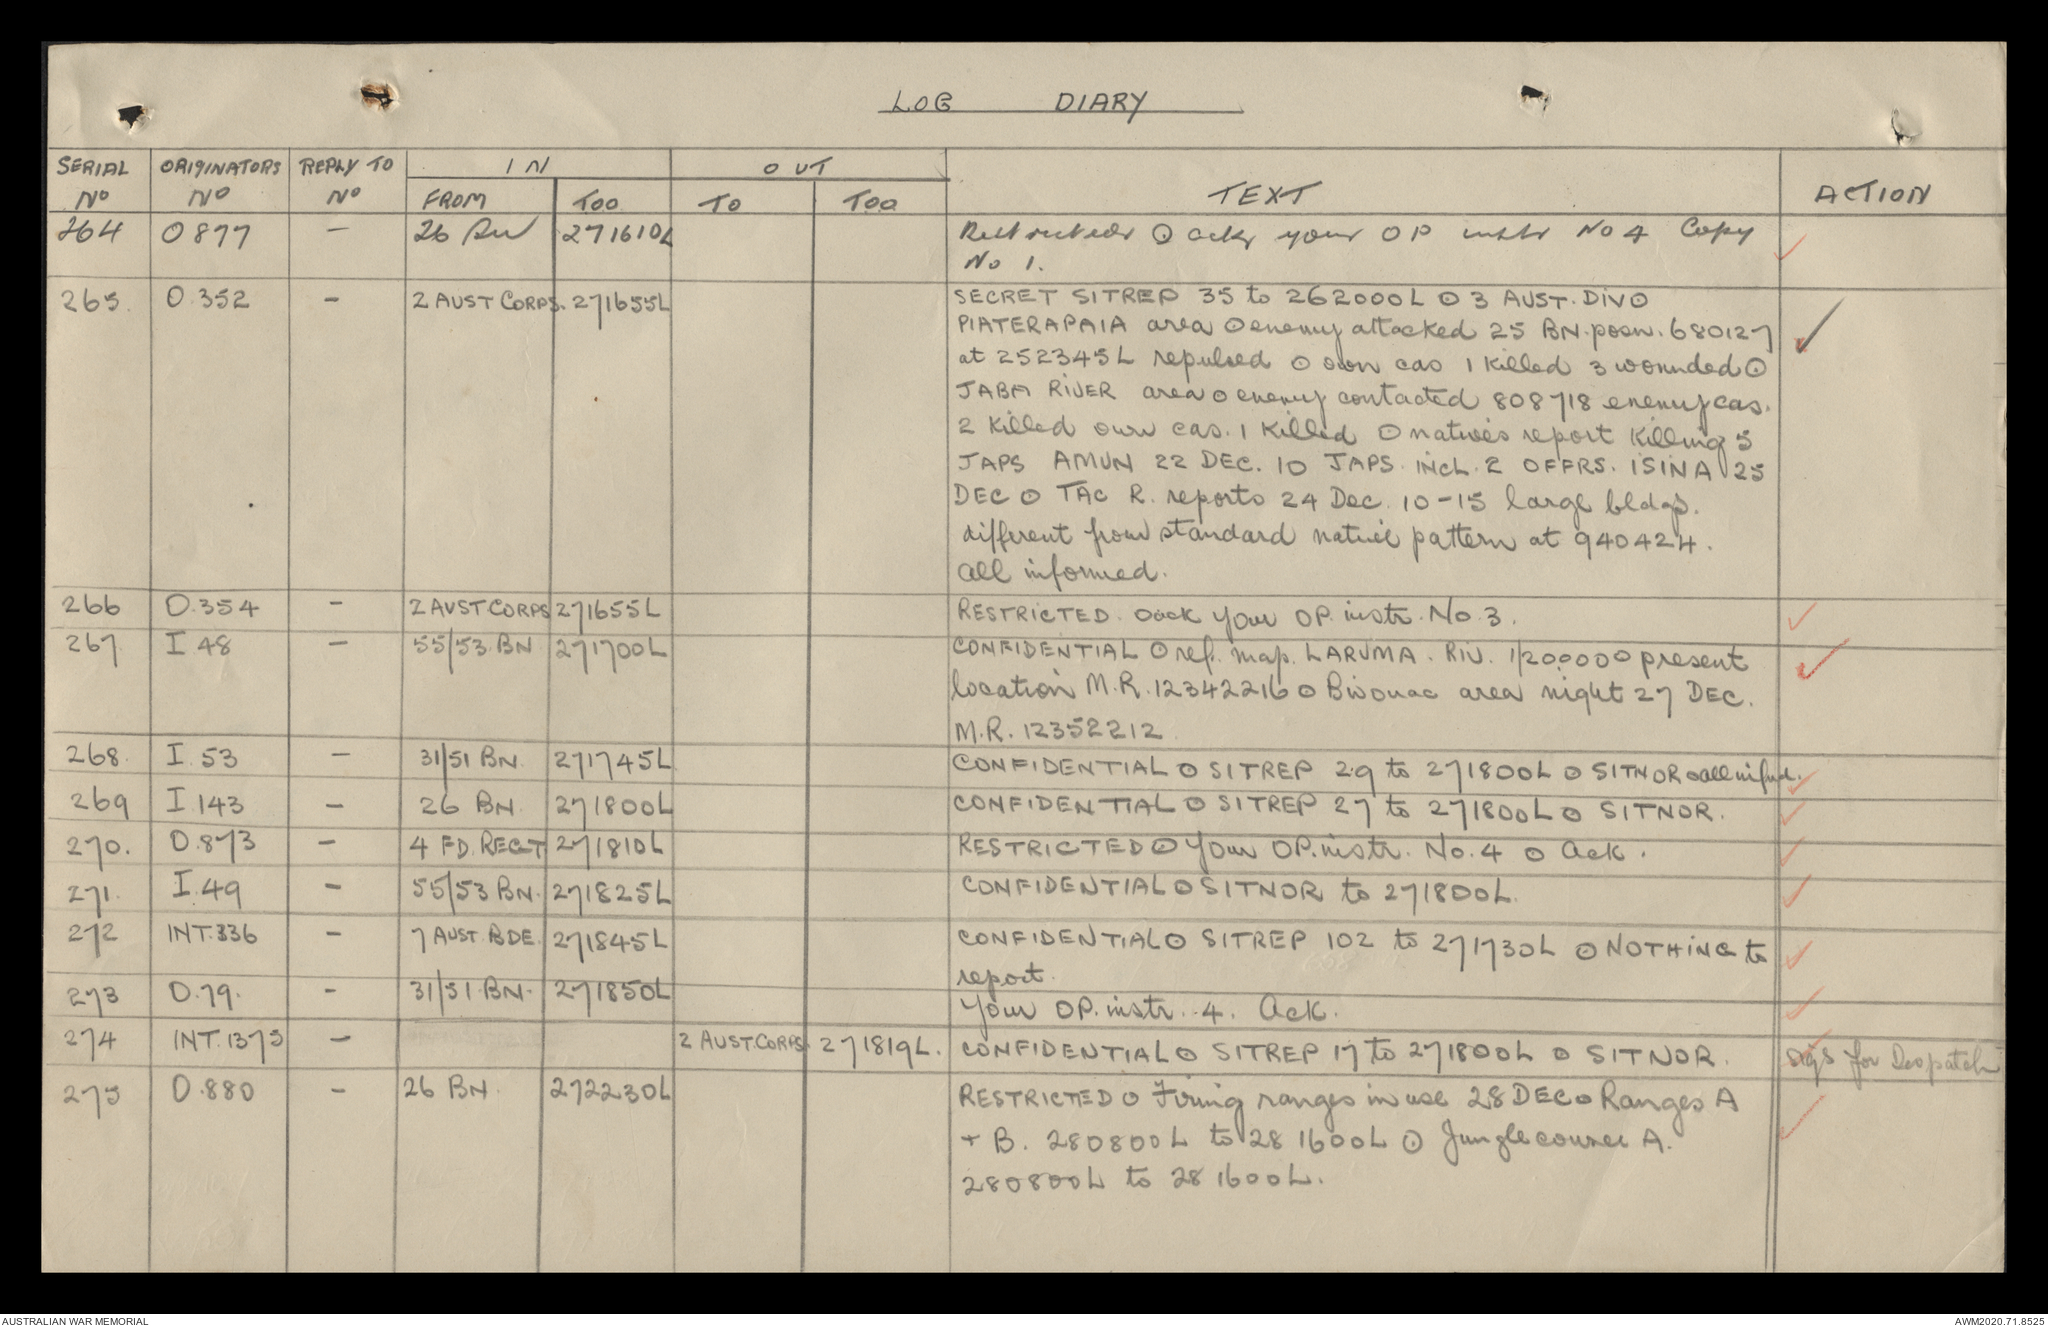 LOG DIARY
SERIAL NO ORIGINATORS NO REPLY TO NO IN OUT TEXT ACTION
FROM TOO TO TOO
264 O 877 — 26 Bn 271610L Restricted ⊙ ack your OP instr No 4 Copy
No 1.
265. O.352 – 2 AUST CORPS. 271655L SECRET SITREP 35 to 262000L ⊙ 3 AUST. DIV ⊙
PIATERAPAIA area ⊙ enemy attacked 25 BN. posn. 680127
at 252345L repulsed ⊙ own cas 1 killed 3 wounded ⊙
JABA RIVER area ⊙ enemy contacted 808718 enemy cas.
2 killed own cas. 1 killed ⊙ natives report killing 5
JAPS AMUN 22 DEC. 10 JAPS. INCL. 2 OFFRS. ISINA 25
DEC ⊙ TAC R. reports 24 Dec. 10-15 large bldgs.
different from standard native pattern at 940424.
all informed.
266 O.354 – 2 AUST CORPS 271655L RESTRICTED. ack your OP. instr. No. 3.
267. I 48 – 55/53 BN 271700L CONFIDENTIAL ⊙ ref. map. LARUMA. RIV. 1/200000 present
location M.R. 12342216 ⊙ Bivouac area night 27 DEC.
M.R. 12352212
268. I. 53 – 31/51 BN. 271745L CONFIDENTIAL ⊙ SITREP 29 to 271800L ⊙ SITNOR ⊙ all infmd.
269 I. 143 – 26 BN. 271800L CONFIDENTIAL ⊙ SITREP 27 to 271800L ⊙ SITNOR.
270. O.873 – 4 FD. REGT 271810L RESTRICTED ⊙ Your OP. instr. No. 4 ⊙ Ack.
271. I. 49 – 55/53 BN. 271825L CONFIDENTIAL ⊙ SITNOR to 271800L.
272 INT. 336 – 7 AUST. BDE. 271845L CONFIDENTIAL ⊙ SITREP 102 to 271730L ⊙ NOTHING to
report.
273 O.79. – 31/51 BN. 271850L Your OP. instr. 4. Ack.
274 INT. 1375 – 2 AUST. CORPS. 271819L. CONFIDENTIAL ⊙ SITREP 17 to 271800L ⊙ SITNOR. Sigs for Despatch
275 O.880 – 26 BN. 272230L RESTRICTED ⊙ Firing ranges in use 28 DEC ⊙ Ranges A
+ B. 280800L to 281600L ⊙ Jungle course A.
280800L to 281600L.
AUSTRALIAN WAR MEMORIAL AWM2020.71.8525